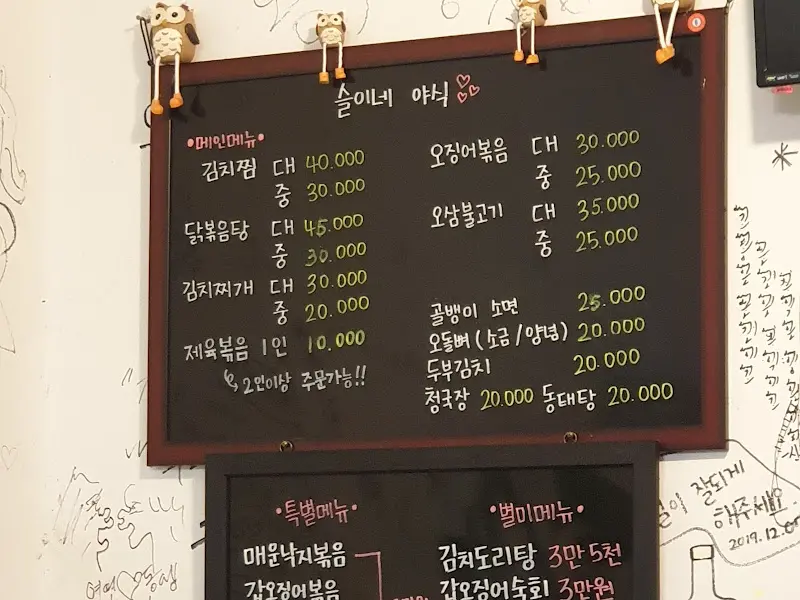 슬이네 야식
•메인메뉴•
김치찜 대 40.000
중 30.000
닭볶음탕 대 45.000
중 30.000
김치찌개 대 30.000
중 20.000
제육볶음 1인 10.000
2인이상 주문가능!!
오징어볶음 대 30.000
중 25.000
오삼불고기 대 35.000
중 25.000
골뱅이 소면 25.000
오돌뼈(소금/양념) 20.000
두부김치 20.000
청국장 20.000 동태탕 20.000
•특별메뉴•
매운낙지볶음
갑오징어볶음
•별미메뉴•
김치도리탕 3만 5천
갑오징어숙회 3만원
잘되게
해주세요